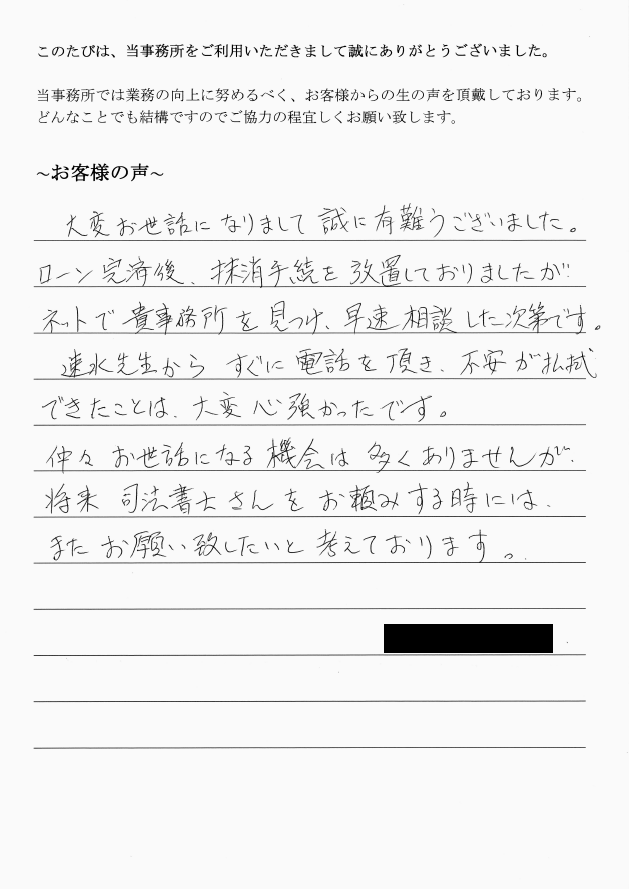 このたびは、当事務所をご利用いただきまして誠にありがとうございました。
当事務所では業務の向上に努めるべく、お客様からの生の声を頂戴しております。
どんなことでも結構ですのでご協力の程宜しくお願い致します。
～お客様の声～
大変お世話になりまして誠に有難うございました。
ローン完済後、抹消手続を放置しておりましたが
ネットで貴事務所を見つけ、早速相談した次第です。
速水先生からすぐに電話を頂き、不安が払拭
できたことは、大変心強かったです。
仲々お世話になる機会は多くありませんが、
将来司法書士さんをお頼みする時には、
またお願い致したいと考えております。